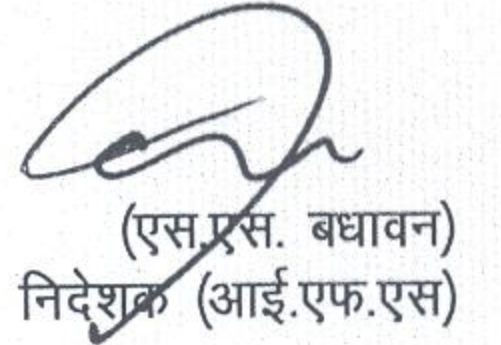 (एस.एस. बधावन)
निदेशक (आई.एफ.एस)